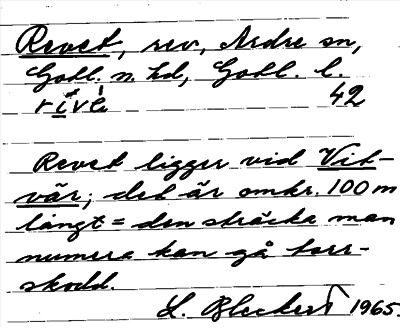 Revet, rev, Ardre sn,
Gotl. n. hd, Gotl. l.
42
Revet ligger vid Vit-
vär; det är omkr. 100 m
långt = den sträcka man
numera kan gå torr-
skodd.
L. Bleckert 1965.